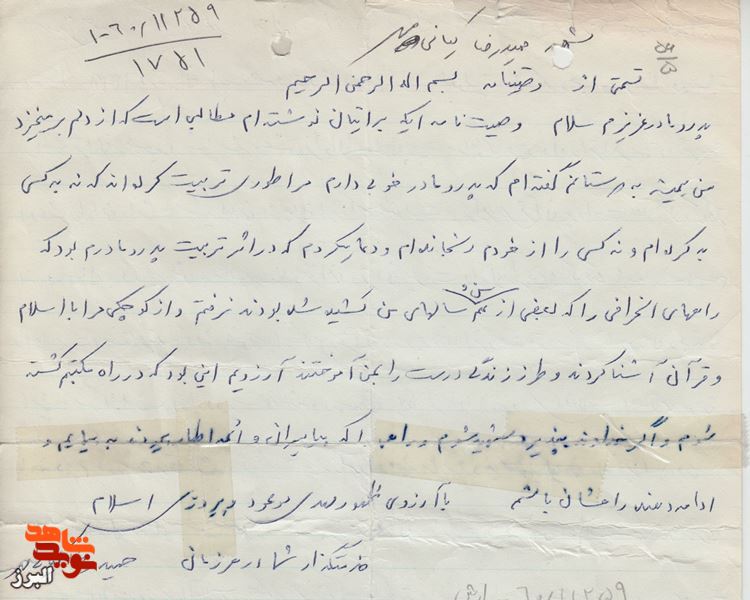 ۱۰۶۰/۱۱۲۵۹
۱۷۵۱
شهید حمیدرضا کیانی
قسمتی از وصیتنامه بسم الله الرحمن الرحیم
پدر و مادر عزیزم سلام وصیت نامه ایکه براتیان نوشته ام مطالبی است که از دلم برمیخیزد
من همیشه به دوستانم گفته ام که پدر و مادر خوبی دارم مرا طوری تربیت کرده اند که نه به کسی
بد کرده ام و نه کسی را از خودم رنجانده ام و دعا میکردم که در اثر تربیت پدر و مادرم بود که
راههای انحرافی را که بعضی از هم سن و سالهای من کشیده شده بودند نرفتم و از کوچکی مرا با اسلام
و قرآن آشنا کردند و طرز زندگی درست را بمن آموختند آرزویم این بود که در راه مکتبم کشته
شوم و اگر خداوند بپذیرد شهید شوم و راهی را که پیامبران و ائمه اطهار بپیمایم و
ادامه دهنده راهشان باشم با آرزوی ظهور مهدی موعود و پیروزی اسلام
خدمتگذار شما
شاهد
نوید
البرز
۶۰/۱۱۲۵۹